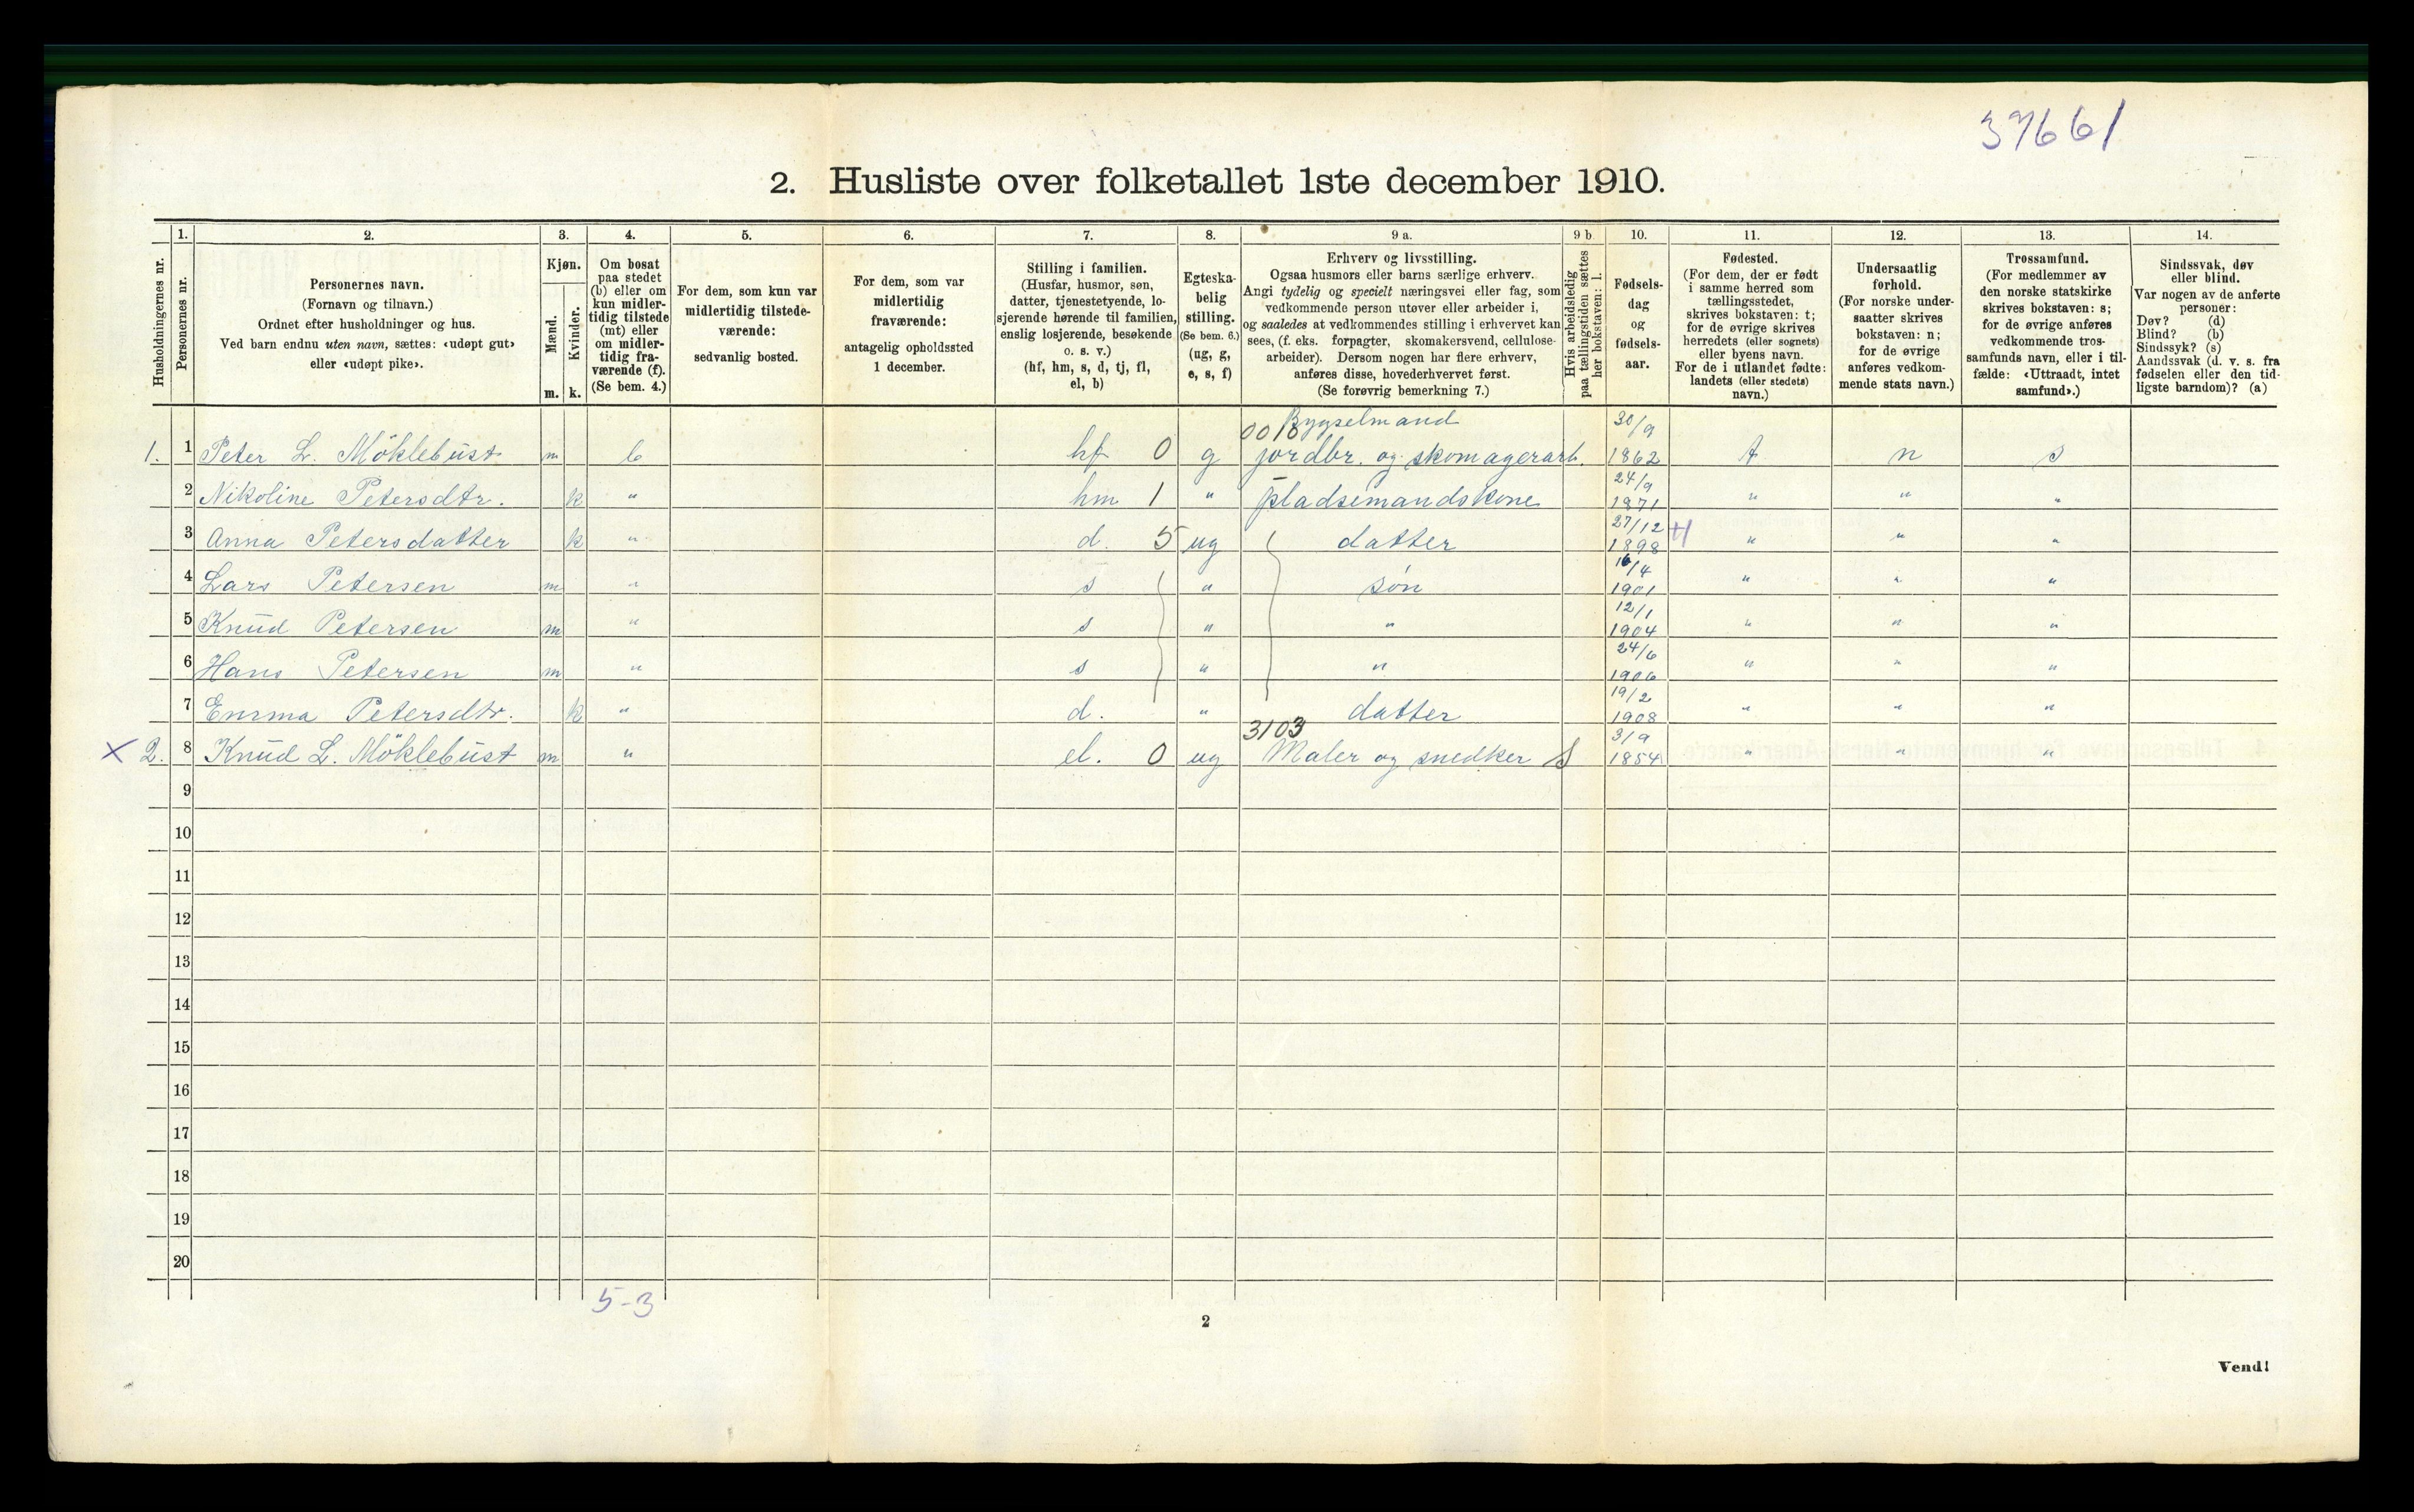 37661
2. Husliste over folketallet 1ste december 1910.
Husholdningernes nr.
1.
Personernes nr.
2.
Personernes navn.
(Fornavn og tilnavn.)
Ordnet efter husholdninger og hus.
Ved barn endnu uten navn, sættes: «udøpt gut»
eller «udøpt pike».
3.
Kjøn.
Mænd.
Kvinder.
m. k.
4.
Om bosat
paa stedet
(b) eller om
kun midler-
tidig tilstede
(mt) eller
om midler-
tidig fra-
værende (f).
(Se bem. 4.)
5.
For dem, som kun var
midlertidig tilstede-
værende:
sedvanlig bosted.
6.
For dem, som var
midlertidig
fraværende:
antagelig opholdssted
1 december.
7.
Stilling i familien.
(Husfar, husmor, søn,
datter, tjenestetyende, lo-
sjerende hørende til familien,
enslig losjerende, besøkende
o. s. v.)
(hf, hm, s, d, tj, fl,
el, b)
8.
Egteska-
belig
stilling.
(Se bem. 6.)
(ug, g,
e, s, f)
9 a.
Erhverv og livsstilling.
Ogsaa husmors eller barns særlige erhverv.
Angi tydelig og specielt næringsvei eller fag, som
vedkommende person utøver eller arbeider i,
og saaledes at vedkommendes stilling i erhvervet kan
sees, (f. eks. forpagter, skomakersvend, cellulose-
arbeider). Dersom nogen har flere erhverv,
anføres disse, hovederhvervet først.
(Se forøvrig bemerkning 7.)
9 b
Hvis arbeidsledig
paa tællingstiden sættes
her bokstaven: l.
10.
Fødsels-
dag
og
fødsels-
aar.
11.
Fødested.
(For dem, der er født
i samme herred som
tællingsstedet,
skrives bokstaven: t;
for de øvrige skrives
herredets (eller sognets)
eller byens navn.
For de i utlandet fødte:
landets (eller stedets)
navn.)
12.
Undersaatlig
forhold.
(For norske under-
saatter skrives
bokstaven: n;
for de øvrige
anføres vedkom-
mende stats navn.)
13.
Trossamfund.
(For medlemmer av
den norske statskirke
skrives bokstaven: s;
for de øvrige anføres
vedkommende tros-
samfunds navn, eller i til-
fælde: «Uttraadt, intet
samfund».)
14.
Sindssvak, døv
eller blind.
Var nogen av de anførte
personer:
Døv? (d)
Blind? (b)
Sindssyk? (s)
Aandssvak (d. v. s. fra
fødselen eller den tid-
ligste barndom)? (a)
Bygselmand 30/9
1. 1 Peter L. Möklebust m b hf 0 g jordbr. og skomagerarb. 1862 t n s
24/9
2 Nikoline Petersdtr. k " hm 1 " pladsemandskone 1871 " " "
27/12
3 Anna Petersdatter k " d. 5 ug datter 1898 " " "
16/4
4 Lars Petersen m " s " søn 1901 " " "
12/1
5 Knud Petersen m " s " " 1904 " " "
24/6
6 Hans Petersen m " s " " 1906 " " "
19/2
7 Emma Petersdtr. k " d. " datter 1908 " " "
3103 3/9
X 2. 8 Knud L. Möklebust m " el. 0 ug Maler og snedker S 1854 " " "
9
10
11
12
13
14
15
16
17
18
19
20
5-3
2
Vend!